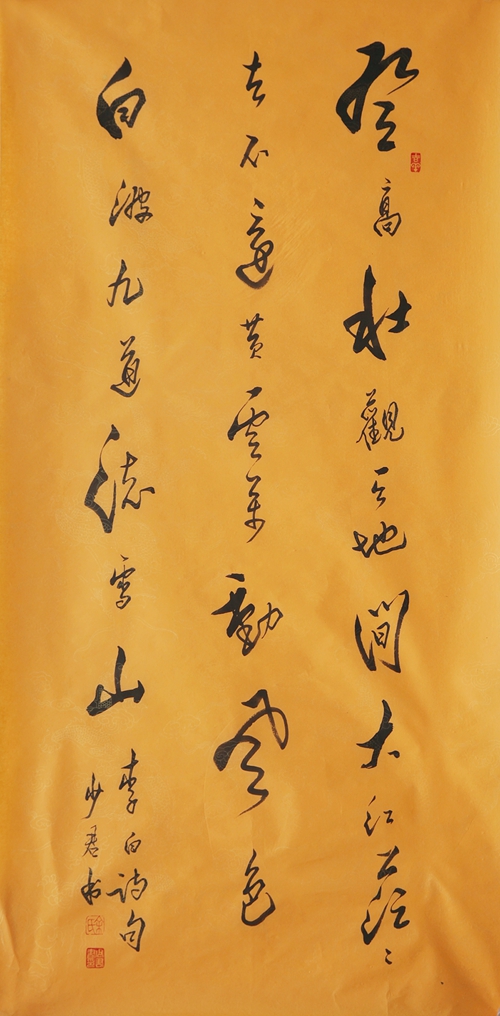 登高壯觀天地間大江茫〻
去不還黃雲萬里動風色
白波九道流雪山
李白詩句
少君書